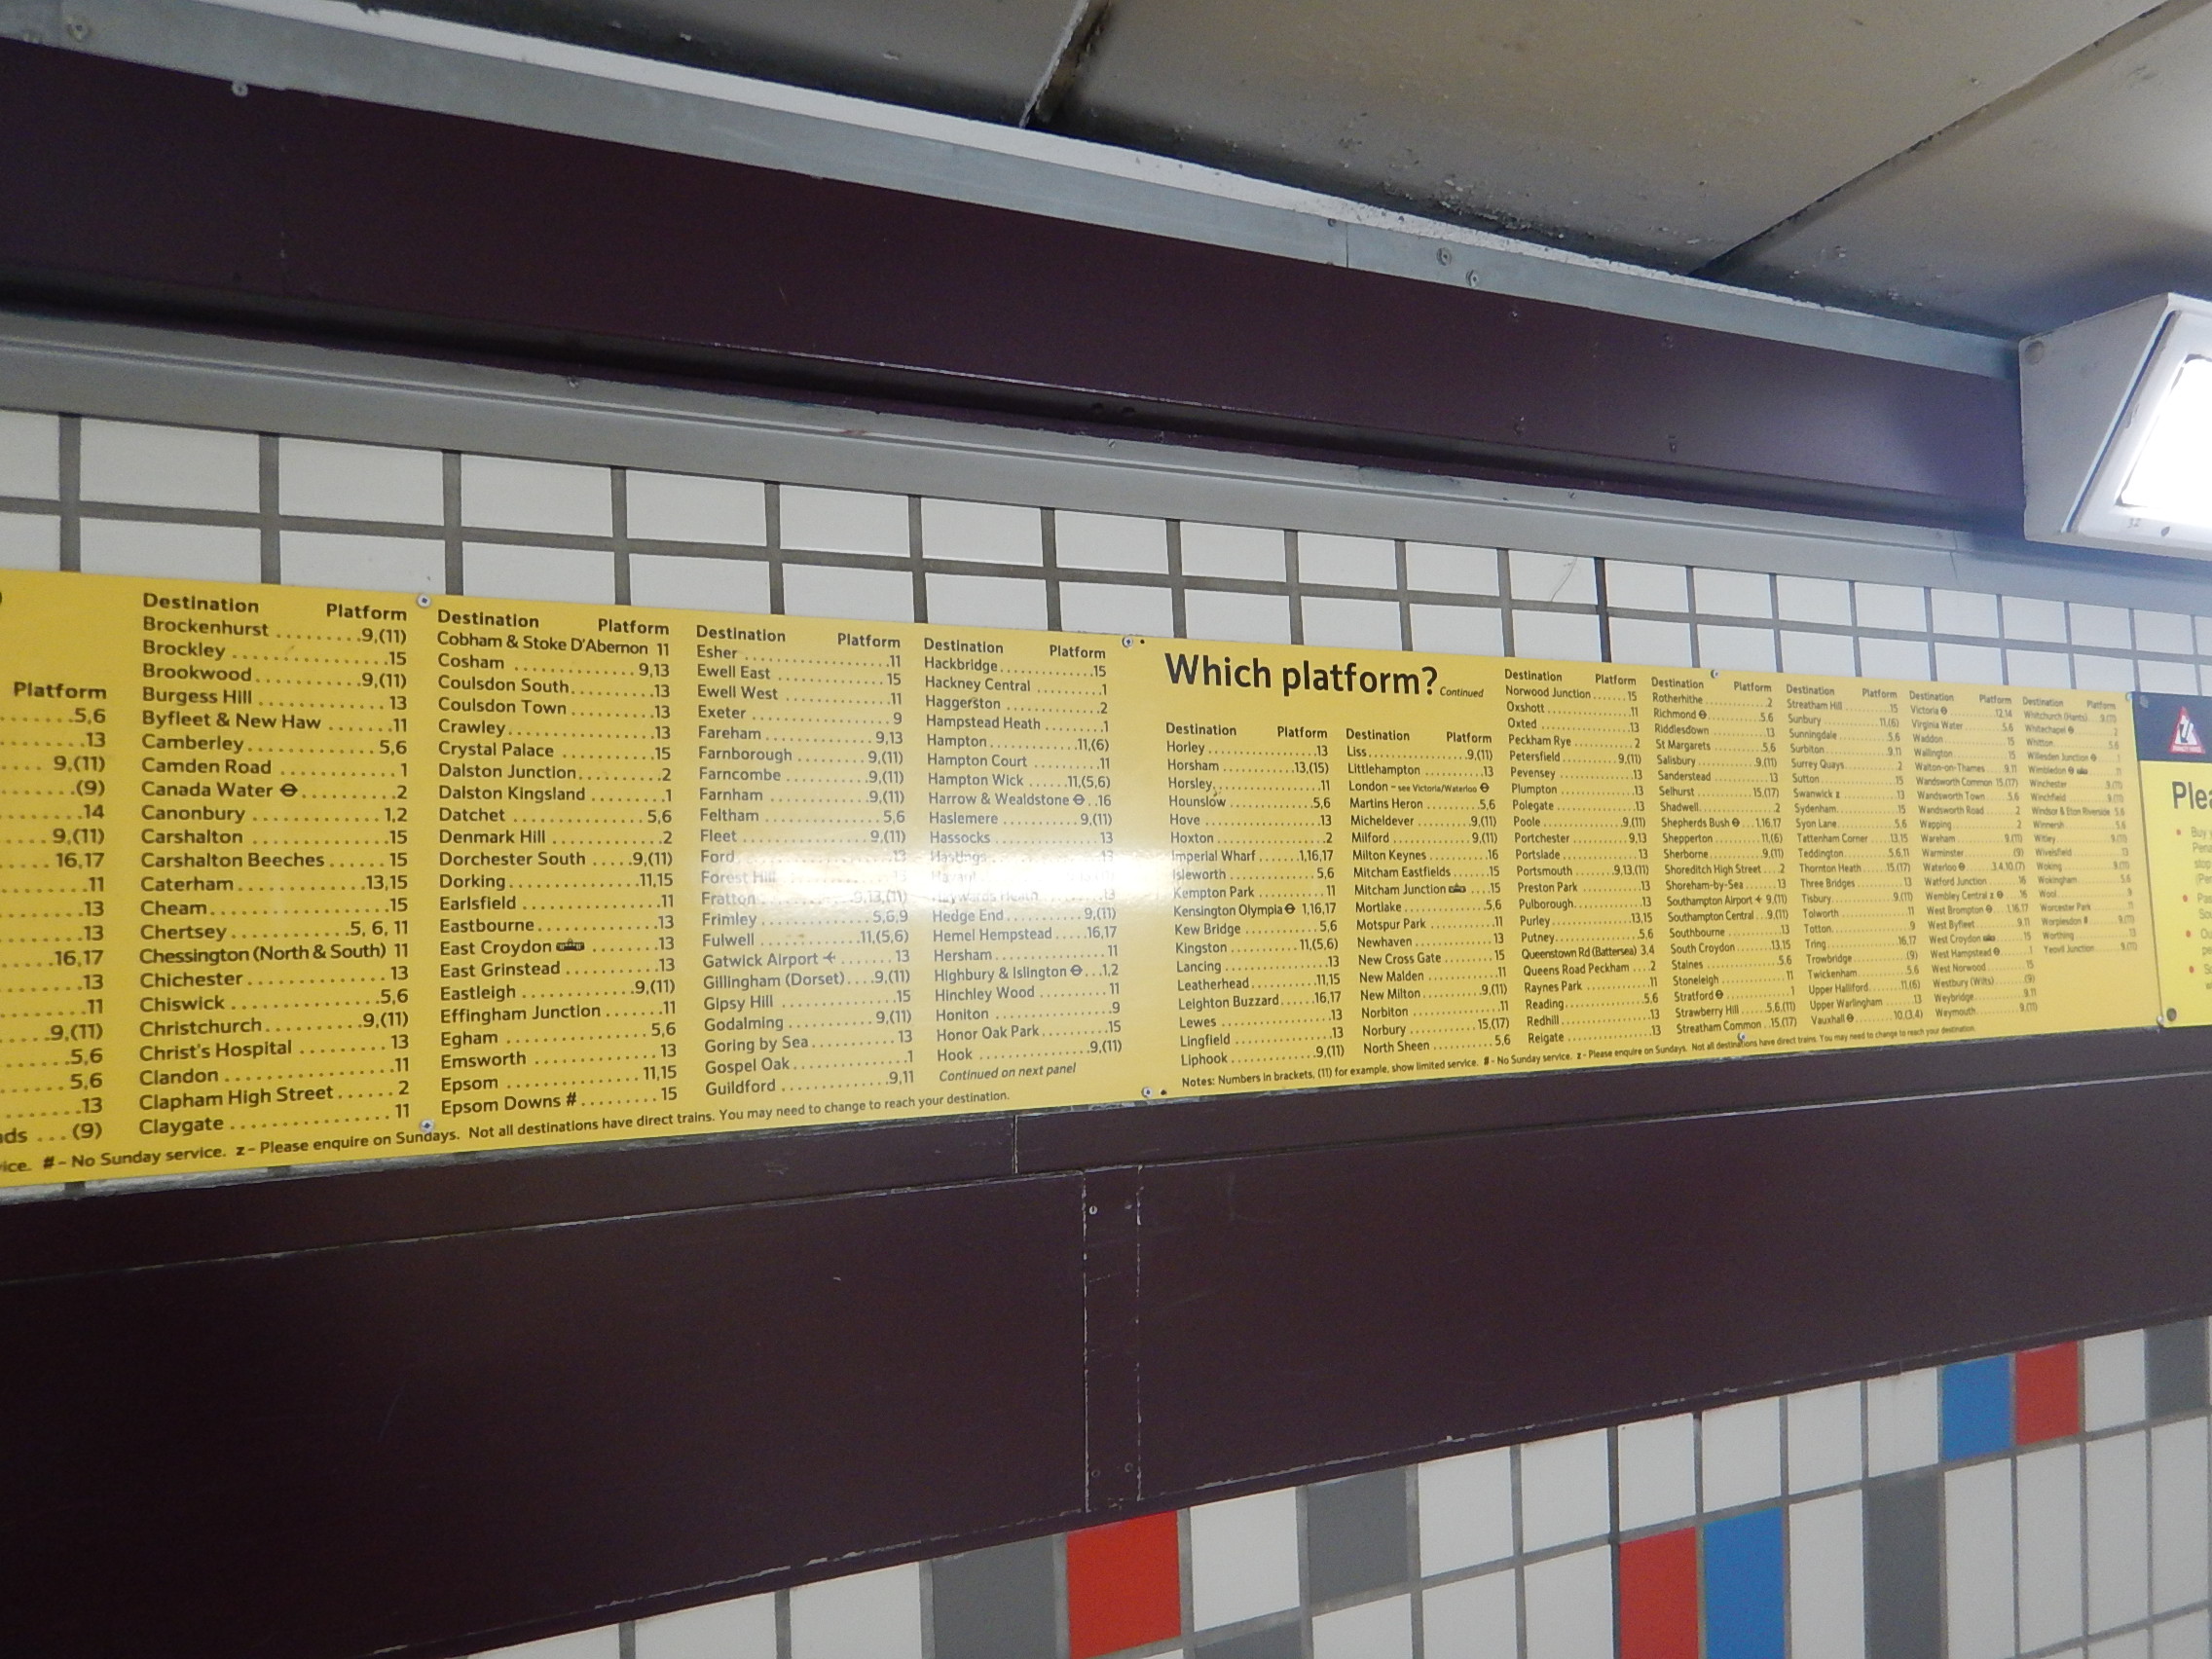 Platform
5,6
13
9,(11)
(9)
14
9,(11)
16,17
11
13
13
16,17
13
11
9,(11)
5,6
5,6
13
(9)
Destination Platform
Brockenhurst 9,(11)
Brockley 15
Brookwood 9,(11)
Burgess Hill 13
Byfleet & New Haw 11
Camberley 5,6
Camden Road 1
Canada Water 2
Canonbury 1,2
Carshalton 15
Carshalton Beeches 15
Caterham 13,15
Cheam 15
Chertsey 5, 6, 11
Chessington (North & South) 11
Chichester 13
Chiswick 5,6
Christchurch 9,(11)
Christ's Hospital 13
Clandon 11
Clapham High Street 2
Claygate 11
Destination Platform
Cobham & Stoke D'Abernon 11
Cosham 9,13
Coulsdon South 13
Coulsdon Town 13
Crawley 13
Crystal Palace 15
Dalston Junction 2
Dalston Kingsland 1
Datchet 5,6
Denmark Hill 2
Dorchester South 9,(11)
Dorking 11,15
Earlsfield 11
Eastbourne 13
East Croydon 13
East Grinstead 13
Eastleigh 9,(11)
Effingham Junction 11
Egham 5,6
Emsworth 13
Epsom 11,15
Epsom Downs # 15
Destination Platform
Esher 11
Ewell East 15
Ewell West 11
Exeter 9
Fareham 9,13
Farnborough 9,(11)
Farncombe 9,(11)
Farnham 9,(11)
Feltham 5,6
Fleet 9,(11)
Ford 13
Forest Hill 13
Fratton 9,13,(11)
Frimley 5,6,9
Fulwell 11,(5,6)
Gatwick Airport 13
Gillingham (Dorset) 9,(11)
Gipsy Hill 15
Godalming 9,(11)
Goring by Sea 13
Gospel Oak 1
Guildford 9,11
Destination Platform
Hackbridge 15
Hackney Central 1
Haggerston 2
Hampstead Heath 1
Hampton 11,(6)
Hampton Court 11
Hampton Wick 11,(5,6)
Harrow & Wealdstone 16
Haslemere 9,(11)
Hassocks 13
Hastings 13
Haywards Heath 13
Hedge End 9,(11)
Hemel Hempstead 16,17
Hersham 11
Highbury & Islington 1,2
Hinchley Wood 11
Honiton 9
Honor Oak Park 15
Hook 9,(11)
Continued on next panel
# - No Sunday service. z - Please enquire on Sundays. Not all destinations have direct trains. You may need to change to reach your destination.
Which platform? Continued
Destination Platform
Horley 13
Horsham 13,(15)
Horsley 11
Hounslow 5,6
Hove 13
Hoxton 2
Imperial Wharf 1,16,17
Isleworth 5,6
Kempton Park 11
Kensington Olympia 1,16,17
Kew Bridge 5,6
Kingston 11,(5,6)
Lancing 13
Leatherhead 11,15
Leighton Buzzard 16,17
Lewes 13
Lingfield 13
Liphook 9,(11)
Destination Platform
Liss 9,(11)
Littlehampton 13
London - see Victoria/Waterloo
Martins Heron 5,6
Micheldever 9,(11)
Milford 9,(11)
Milton Keynes 16
Mitcham Eastfields 15
Mitcham Junction 15
Mortlake 5,6
Motspur Park 11
Newhaven 13
New Cross Gate 15
New Malden 11
New Milton 9,(11)
Norbiton 11
Norbury 15,(17)
North Sheen 5,6
Destination Platform
Norwood Junction 15
Oxshott 11
Oxted 13
Peckham Rye 2
Petersfield 9,(11)
Pevensey 13
Plumpton 13
Polegate 13
Poole 9,(11)
Portchester 9,13
Portslade 13
Portsmouth 9,13,(11)
Preston Park 13
Pulborough 13
Purley 13,15
Putney 5,6
Queenstown Rd (Battersea) 3,4
Queens Road Peckham 2
Raynes Park 11
Reading 5,6
Redhill 13
Reigate 13
Destination Platform
Rotherhithe 2
Richmond 5,6
Riddlesdown 13
St Margarets 5,6
Salisbury 9,(11)
Sanderstead 13
Selhurst 15,(17)
Shadwell 2
Shepherds Bush 1,16,17
Shepperton 11,(6)
Sherborne 9,(11)
Shoreditch High Street 2
Shoreham-by-Sea 13
Southampton Airport 9,(11)
Southampton Central 9,(11)
Southbourne 13
South Croydon 13,15
Staines 5,6
Stoneleigh 11
Stratford 1
Strawberry Hill 5,6,(11)
Streatham Common 15,(17)
Destination Platform
Streatham Hill 15
Sunbury 11,(6)
Sunningdale 5,6
Surbiton 9,11
Surrey Quays 2
Sutton 15
Swanwick z 13
Sydenham 15
Syon Lane 5,6
Tattenham Corner 13,15
Teddington 5,6,11
Thornton Heath 15,(17)
Three Bridges 13
Tisbury 9,(11)
Tolworth 11
Totton 9
Tring 16,17
Trowbridge (9)
Twickenham 5,6
Upper Halliford 11,(6)
Upper Warlingham 13
Vauxhall 10,(3,4)
Destination Platform
Victoria 12,14
Virginia Water 5,6
Waddon 15
Wallington 15
Walton-on-Thames 9,11
Wandsworth Common 15,(17)
Wandsworth Town 5,6
Wandsworth Road 2
Wapping 2
Wareham 9,(11)
Warminster (9)
Waterloo 3,4,10,(7)
Watford Junction 16
Wembley Central z 16
West Brompton 1,16,17
West Byfleet 9,11
West Croydon 15
West Hampstead 1
West Norwood 15
Westbury (Wilts) (9)
Weybridge 9,11
Weymouth 9,(11)
Destination Platform
Whitchurch (Hants) 9,(11)
Whitechapel 2
Whitton 5,6
Willesden Junction 1
Wimbledon 11
Winchester 9,(11)
Winchfield 9,(11)
Windsor & Eton Riverside 5,6
Winnersh 5,6
Witley 9,(11)
Wivelsfield 13
Woking 9,(11)
Wokingham 5,6
Wool 9
Worcester Park 11
Worplesdon # 9,(11)
Worthing 13
Yeovil Junction 9,(11)
Notes: Numbers in brackets, (11) for example, show limited service. # - No Sunday service. z - Please enquire on Sundays. Not all destinations have direct trains. You may need to change to reach your destination.